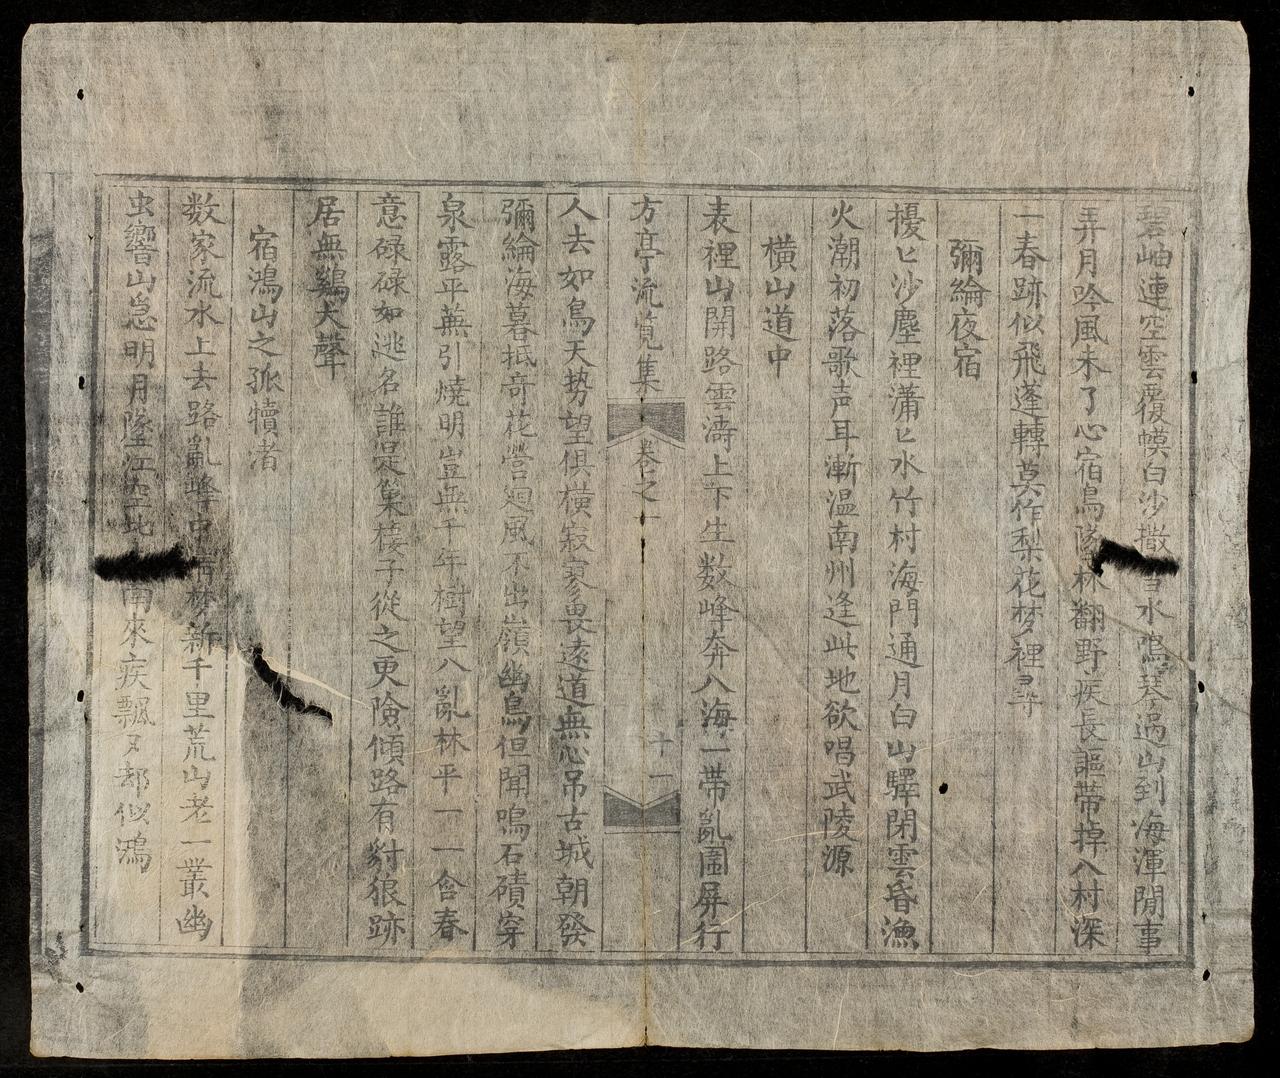 碧岫連空雲覆蟆白沙撒雪水鳴琴過山到海渾閒事
弄月吟風未了心宿鳥隆林翻野疾長謳帶掉入村深
一春跡似飛蓬轉莫作梨花梦裡尋
彌綸夜宿
擾匕沙塵裡瀟匕水竹村海門通月白山驛閉雲昏漁
火潮初落歌声耳漸温南州逢此地欲唱武陵源
橫山道中
表裡山開路雲濤上下生数峰奔入海一帶亂圖屏行
方亭流覧集 卷之一 十一
人去如鳥天势望俱橫寂寥畏遠道無心吊古城朝發
彌綸海暮抵奇花营廻風不出嶺幽鳥但聞鳴石磧穿
泉露平蕪引燒明豈無千年樹望入亂林平一一含春
意碌碌如逃名誰是巢棲子從之更險傾路有豺狼跡
居無鷄犬聲
宿鴻山之孤犢渚
数家流水上去路亂峰中梦新千里荒山老一叢幽
虫響山急明月墜江空南來疾飄又却似鴻